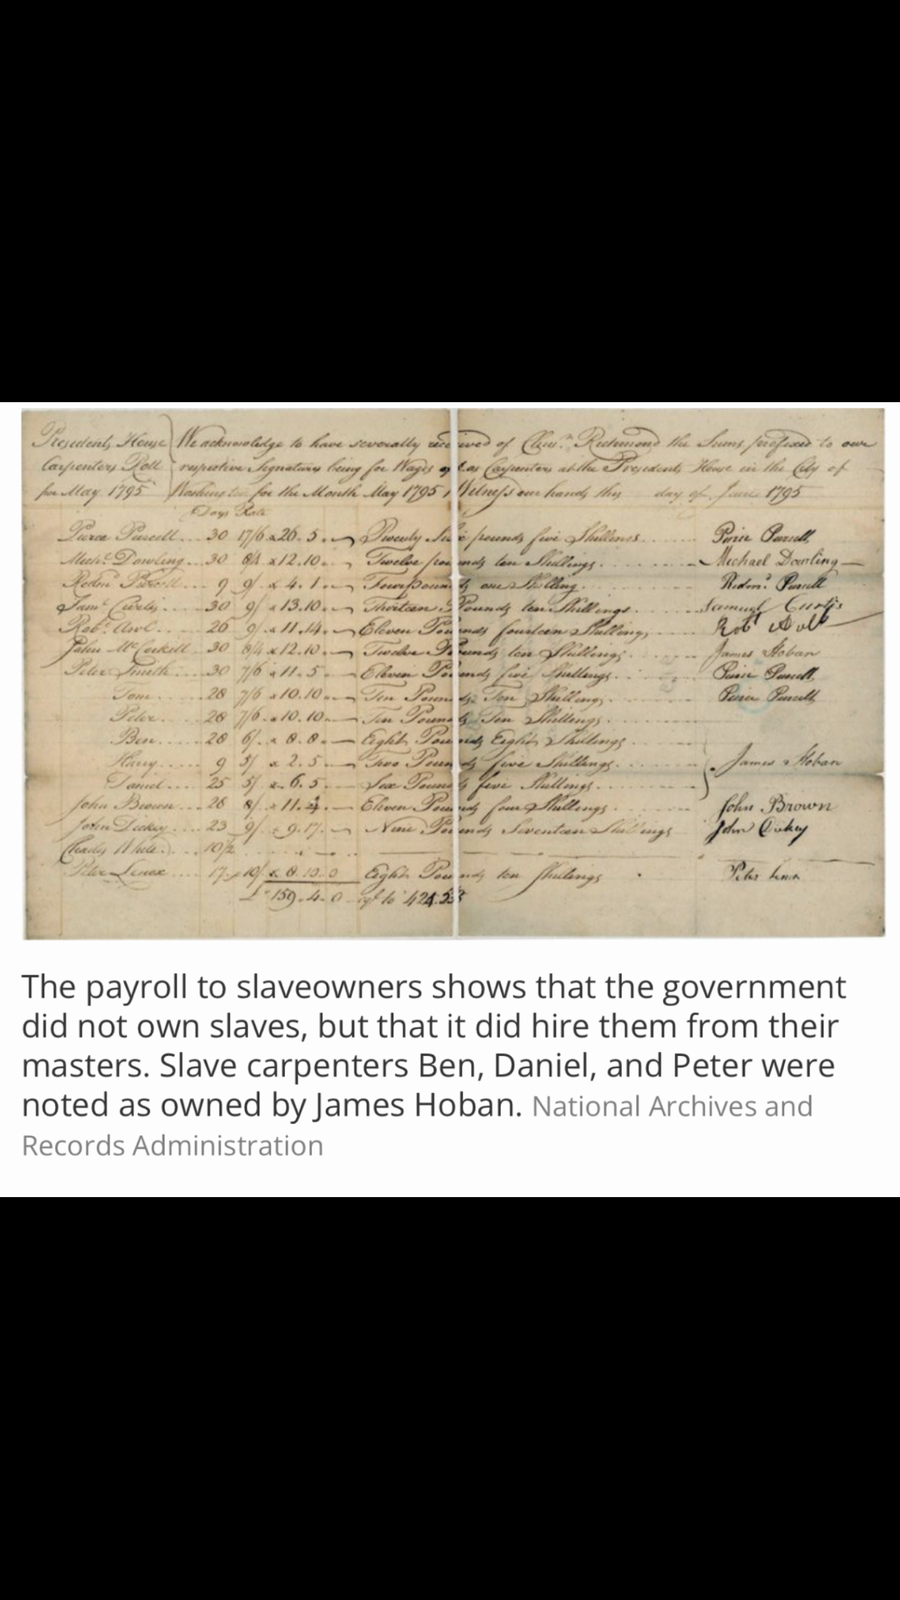 Presidents House We acknowledge to have severally received of Clem.n Richmond the Sums prefixed to our
Carpenters Roll respective Signatures being for Wages as Carpenters at the Presidents House in the City of
for May 1795 Washington for the Month May 1795 Witness our hands this day of June 1795
Days Rate
Pierce Purcell 30 17/6 26.5 Twenty Six pounds five Shillings Pierce Purcell
Mich.l Dowling 30 8/4 12.10 Twelve pounds ten Shillings Michael Dowling
Redm.d Purcell 9 9/ 4.1 Four pounds one Shilling Redm.d Purcell
Sam.l Curtis 30 9/ 13.10 Thirteen Pounds ten Shillings Samuel Curtis
Rob.t Aul 26 9/ 11.14 Eleven Pounds fourteen Shillings Rob.t Aull
John McCorkill 30 8/4 12.10 Twelve Pounds ten Shillings James Hoban
Peter Smith 30 7/6 11.5 Eleven Pounds five Shillings Pierce Purcell
Tom 28 7/6 10.10 Ten Pounds Ten Shillings Pierce Purcell
Peter 28 7/6 10.10 Ten Pounds Ten Shillings
Ben 28 6/ 8.8 Eight Pounds Eight Shillings
Harry 9 5/ 2.5 Two Pounds five Shillings James Hoban
Daniel 25 5/ 6.5 Six Pounds five Shillings
John Brown 28 8/ 11.4 Eleven Pounds four Shillings John Brown
John Dickey 23 9/ 9.17 Nine Pounds Seventeen Shillings John Dickey
Charles White 10/2
Peter Lenox 17 10/ 8.10.0 Eight Pounds ten Shillings Peter Lenox
£159.4.0
The payroll to slaveowners shows that the government
did not own slaves, but that it did hire them from their
masters. Slave carpenters Ben, Daniel, and Peter were
noted as owned by James Hoban. National Archives and
Records Administration